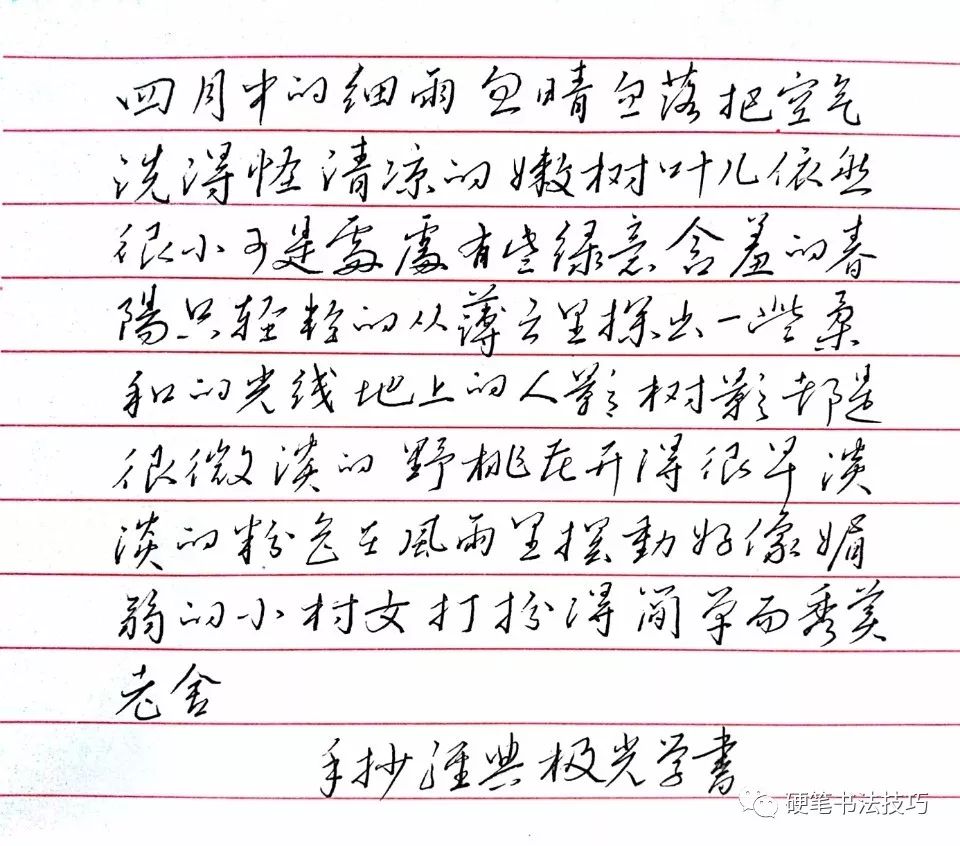 四月中的细雨忽晴忽落把空气
洗得怪清凉的嫩树叶儿依然
很小可是處處有些绿意含羞的春
陽只轻轻的从薄云里探出一些柔
和的光线地上的人影树影都是
很微淡的野桃花开得很早淡
淡的粉色在風雨里摆動好像媚
弱的小村女打扮得简单而秀美
老舍
手抄经典极光学書
硬笔书法技巧